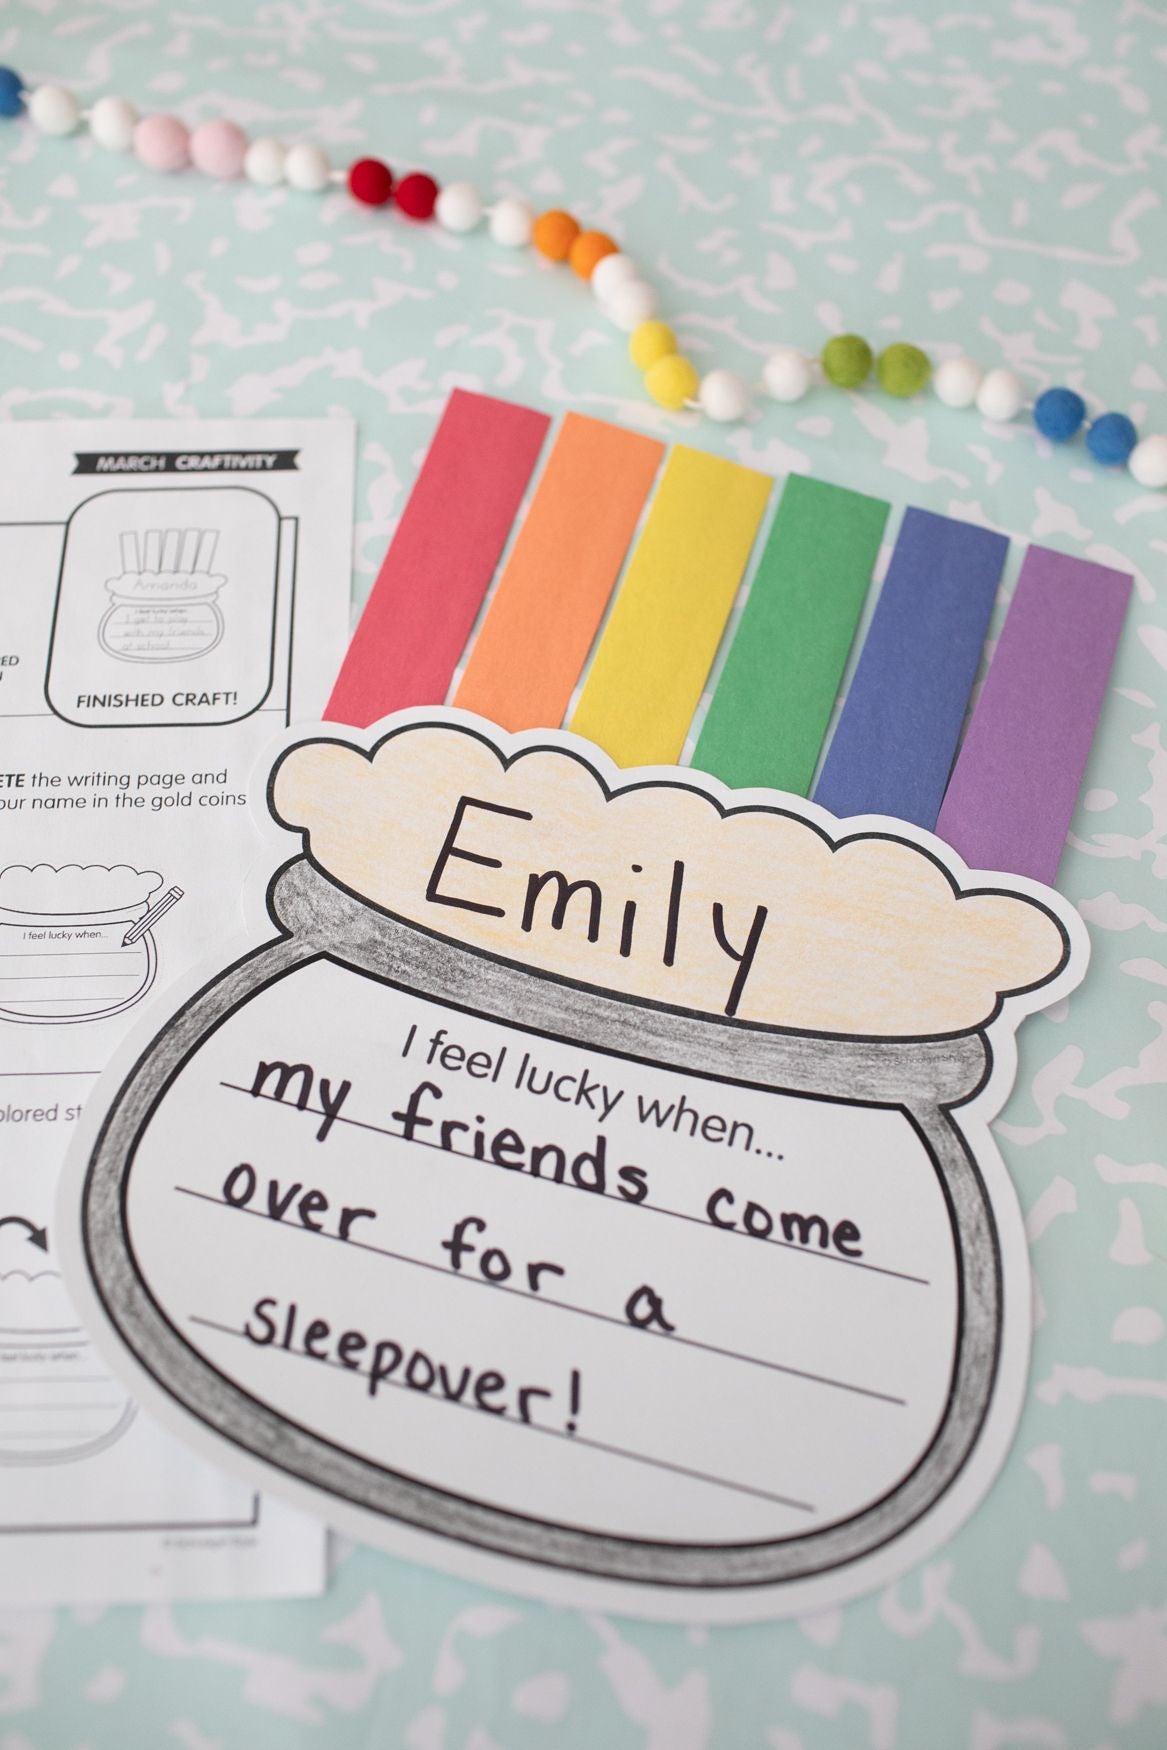 MARCH CRAFTIVITY
Amanda
I feel lucky when...
I get to play
with my friends
at school.
FINISHED CRAFT!
ETE the writing page and
our name in the gold coins
I feel lucky when...
olored st
feel lucky when...
Emily
I feel lucky when...
my friends come
over for a
sleepover!